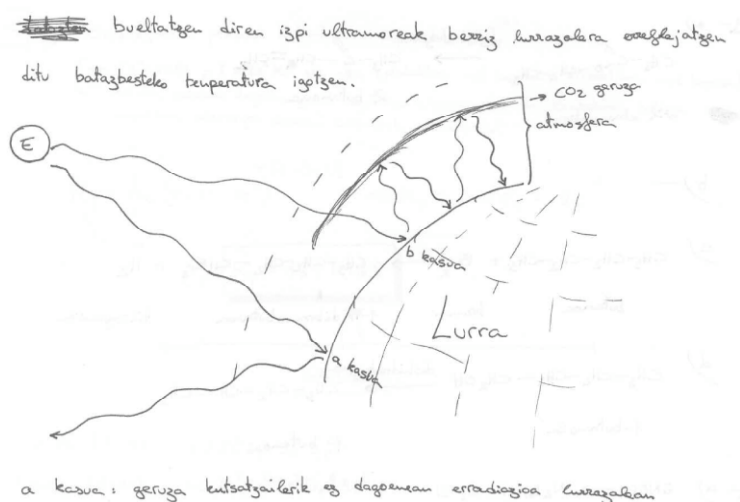 bueltatzen diren izpi ultramoreak berriz lurrazalera erreflejatzen
ditu batazbesteko tenperatura igotzen.
CO2 geruza
atmosfera
E
b kasua
Lurra
a kasua
a kasua: geruza kutsatzailerik ez dagoenean erradiazioa lurrazalean